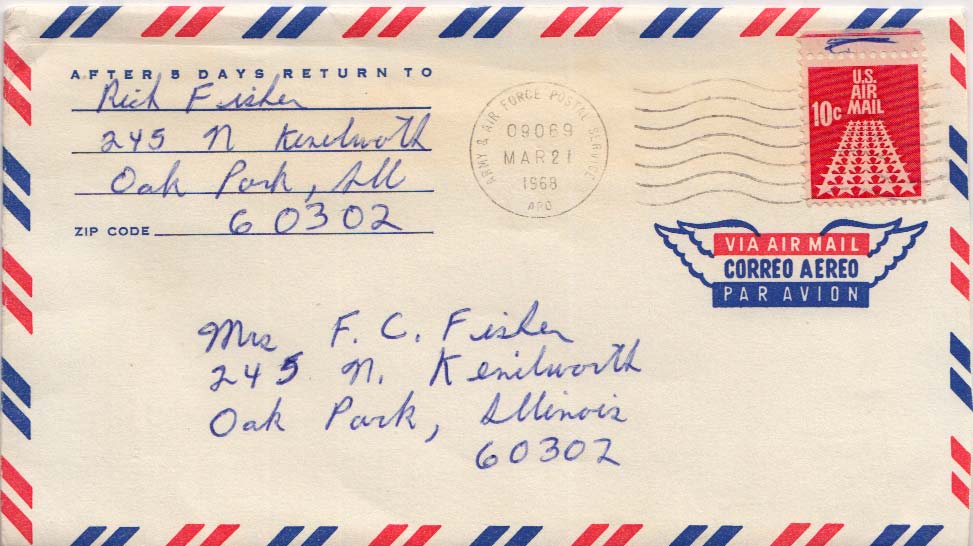 AFTER 5 DAYS RETURN TO
Rich Fisher
245 N Kenilworth
Oak Park, Ill
ZIP CODE 60302
ARMY & AIR FORCE POSTAL SERVICE
09069
MAR 21
1968
APO
U.S.
AIR
MAIL
10c
VIA AIR MAIL
CORREO AEREO
PAR AVION
Mrs F. C. Fisher
245 N. Kenilworth
Oak Park, Illinois
60302